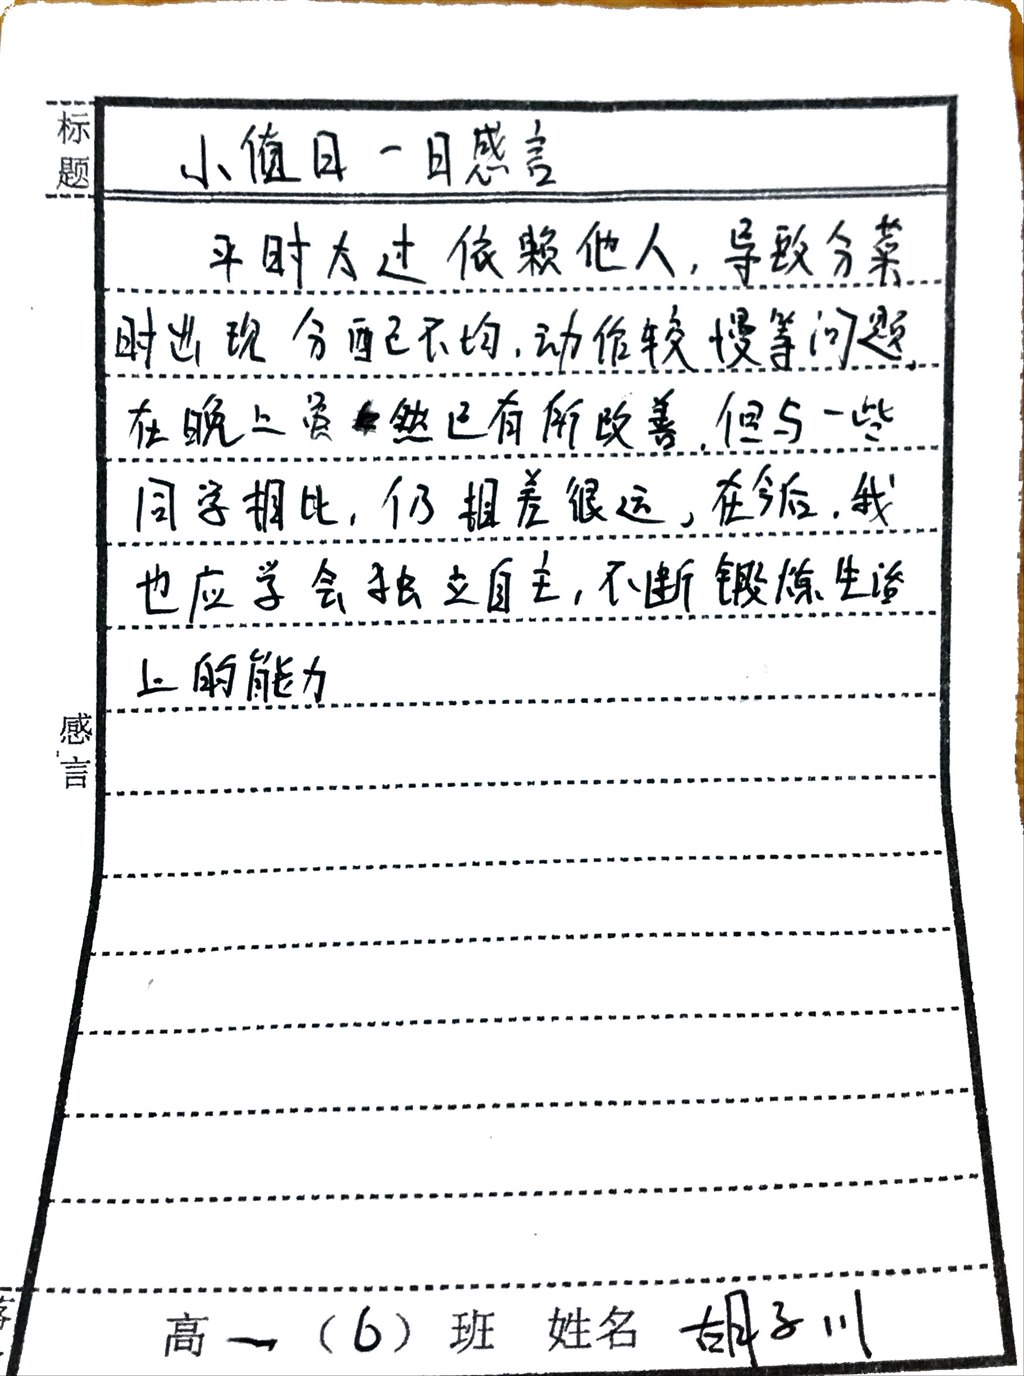 标题
小值日一日感言
平时太过依赖他人,导致分菜
时出现分配已不均,动作较慢等问题,
在晚上虽然已有所改善,但与一些
同学相比,仍相差很远,在今后,我
也应学会独立自主,不断锻炼生活
上的能力
感言
高一(6)班 姓名 胡子川